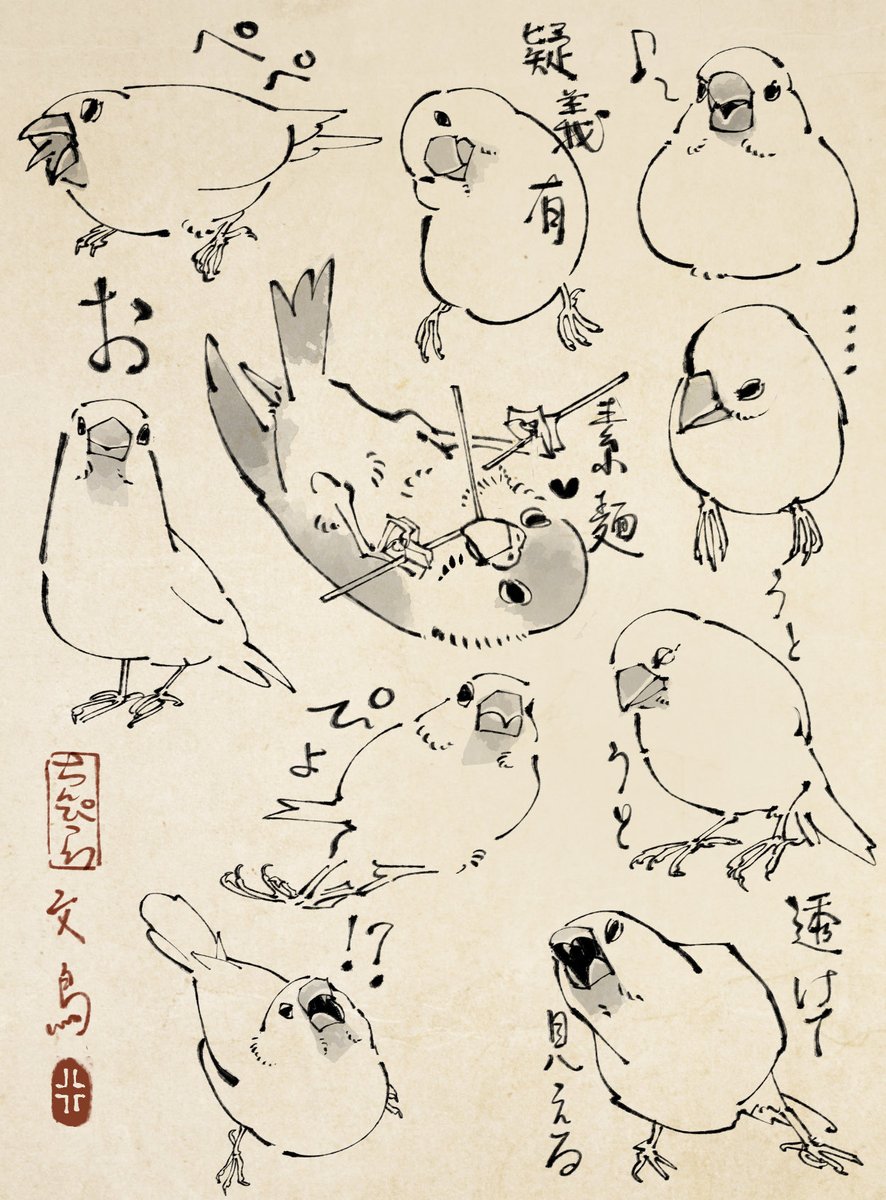 ペペ
疑義有
♪～
お
素麺♥
....
うとうと
ぴよ
ちんぴら
文鳥
!?
透けて
見える